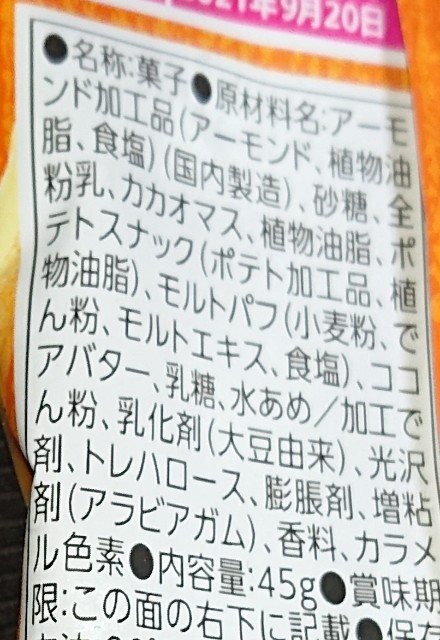 2021年9月20日
●名称:菓子●原材料名:アーモ
ンド加工品(アーモンド、植物油
脂、食塩)(国内製造)、砂糖、全
粉乳、カカオマス、植物油脂、ポ
テトスナック(ポテト加工品、植
物油脂)、モルトパフ(小麦粉、で
ん粉、モルトエキス、食塩)、ココ
アバター、乳糖、水あめ/加工で
ん粉、乳化剤(大豆由来)、光沢
剤、トレハロース、膨脹剤、増粘
剤(アラビアガム)、香料、カラメ
ル色素●内容量:45g●賞味期
限:この面の右下に記載●保存